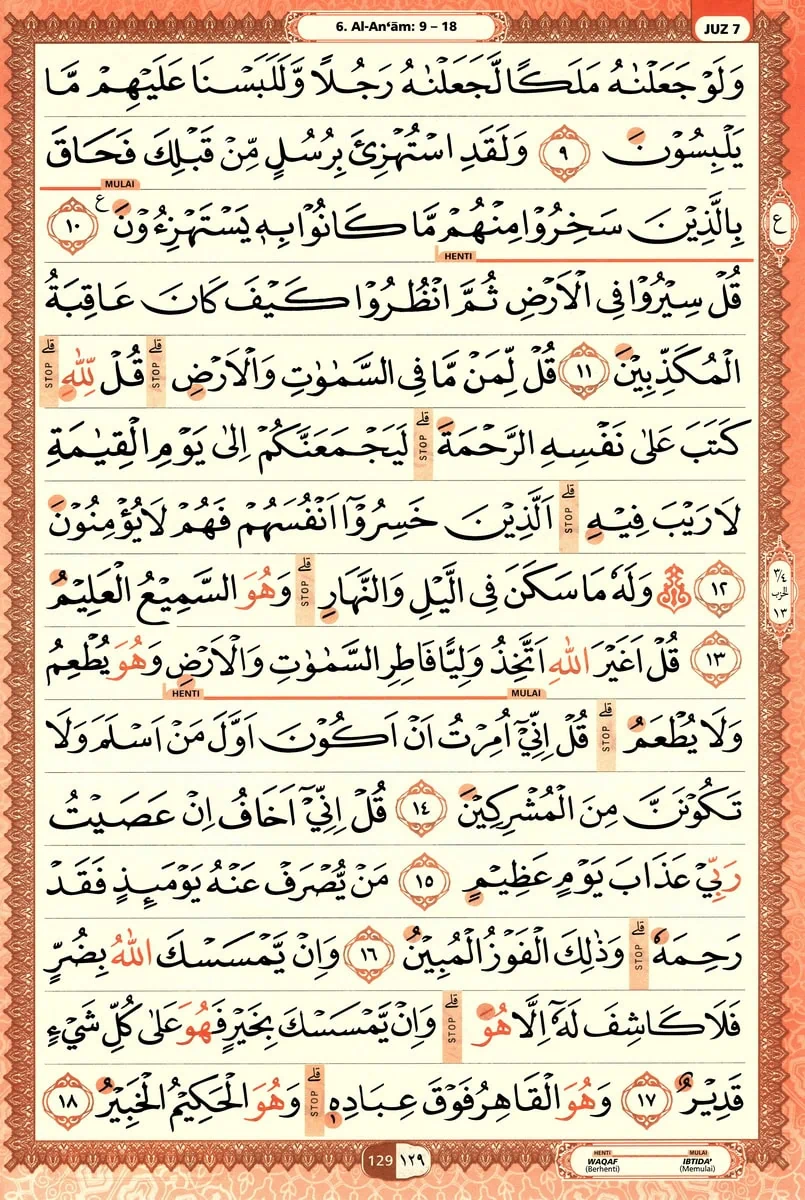 6. Al-An‘ām: 9 – 18
JUZ 7
وَلَوْ جَعَلْنٰهُ مَلَكًا لَّجَعَلْنٰهُ رَجُلًا وَّلَلَبَسْنَا عَلَيْهِمْ مَّا
يَلْبِسُوْنَ ٩ وَلَقَدِ اسْتُهْزِئَ بِرُسُلٍ مِّنْ قَبْلِكَ فَحَاقَ
MULAI
بِالَّذِيْنَ سَخِرُوْا مِنْهُمْ مَّا كَانُوْا بِهٖ يَسْتَهْزِءُوْنَ ࣖ ١٠
ع
HENTI
قُلْ سِيْرُوْا فِى الْاَرْضِ ثُمَّ انْظُرُوْا كَيْفَ كَانَ عَاقِبَةُ
الْمُكَذِّبِيْنَ ١١ قُلْ لِّمَنْ مَّا فِى السَّمٰوٰتِ وَالْاَرْضِ قلے STOP قُلْ لِّلّٰهِ قلے STOP
كَتَبَ عَلٰى نَفْسِهِ الرَّحْمَةَ قلے STOP لَيَجْمَعَنَّكُمْ اِلٰى يَوْمِ الْقِيٰمَةِ
لَا رَيْبَ فِيْهِ قلے STOP اَلَّذِيْنَ خَسِرُوْٓا اَنْفُسَهُمْ فَهُمْ لَا يُؤْمِنُوْنَ
١٢ ۞ وَلَهٗ مَا سَكَنَ فِى الَّيْلِ وَالنَّهَارِ قلے STOP وَهُوَ السَّمِيْعُ الْعَلِيْمُ
٣/٤
الحزب
١٣
١٣ قُلْ اَغَيْرَ اللّٰهِ اَتَّخِذُ وَلِيًّا فَاطِرِ السَّمٰوٰتِ وَالْاَرْضِ وَهُوَ يُطْعِمُ
HENTI MULAI
وَلَا يُطْعَمُ قلے STOP قُلْ اِنِّيْٓ اُمِرْتُ اَنْ اَكُوْنَ اَوَّلَ مَنْ اَسْلَمَ وَلَا
تَكُوْنَنَّ مِنَ الْمُشْرِكِيْنَ ١٤ قُلْ اِنِّيْٓ اَخَافُ اِنْ عَصَيْتُ
رَبِّيْ عَذَابَ يَوْمٍ عَظِيْمٍ ١٥ مَنْ يُّصْرَفْ عَنْهُ يَوْمَىِٕذٍ فَقَدْ
رَحِمَهٗ قلے STOP وَذٰلِكَ الْفَوْزُ الْمُبِيْنُ ١٦ وَاِنْ يَّمْسَسْكَ اللّٰهُ بِضُرٍّ
فَلَا كَاشِفَ لَهٗٓ اِلَّا هُوَ قلے STOP وَاِنْ يَّمْسَسْكَ بِخَيْرٍ فَهُوَ عَلٰى كُلِّ شَيْءٍ
قَدِيْرٌ ١٧ وَهُوَ الْقَاهِرُ فَوْقَ عِبَادِهٖ قلے STOP وَهُوَ الْحَكِيْمُ الْخَبِيْرُ ١٨
129 ١٢٩
HENTI MULAI
WAQAF IBTIDA'
(Berhenti) (Memulai)